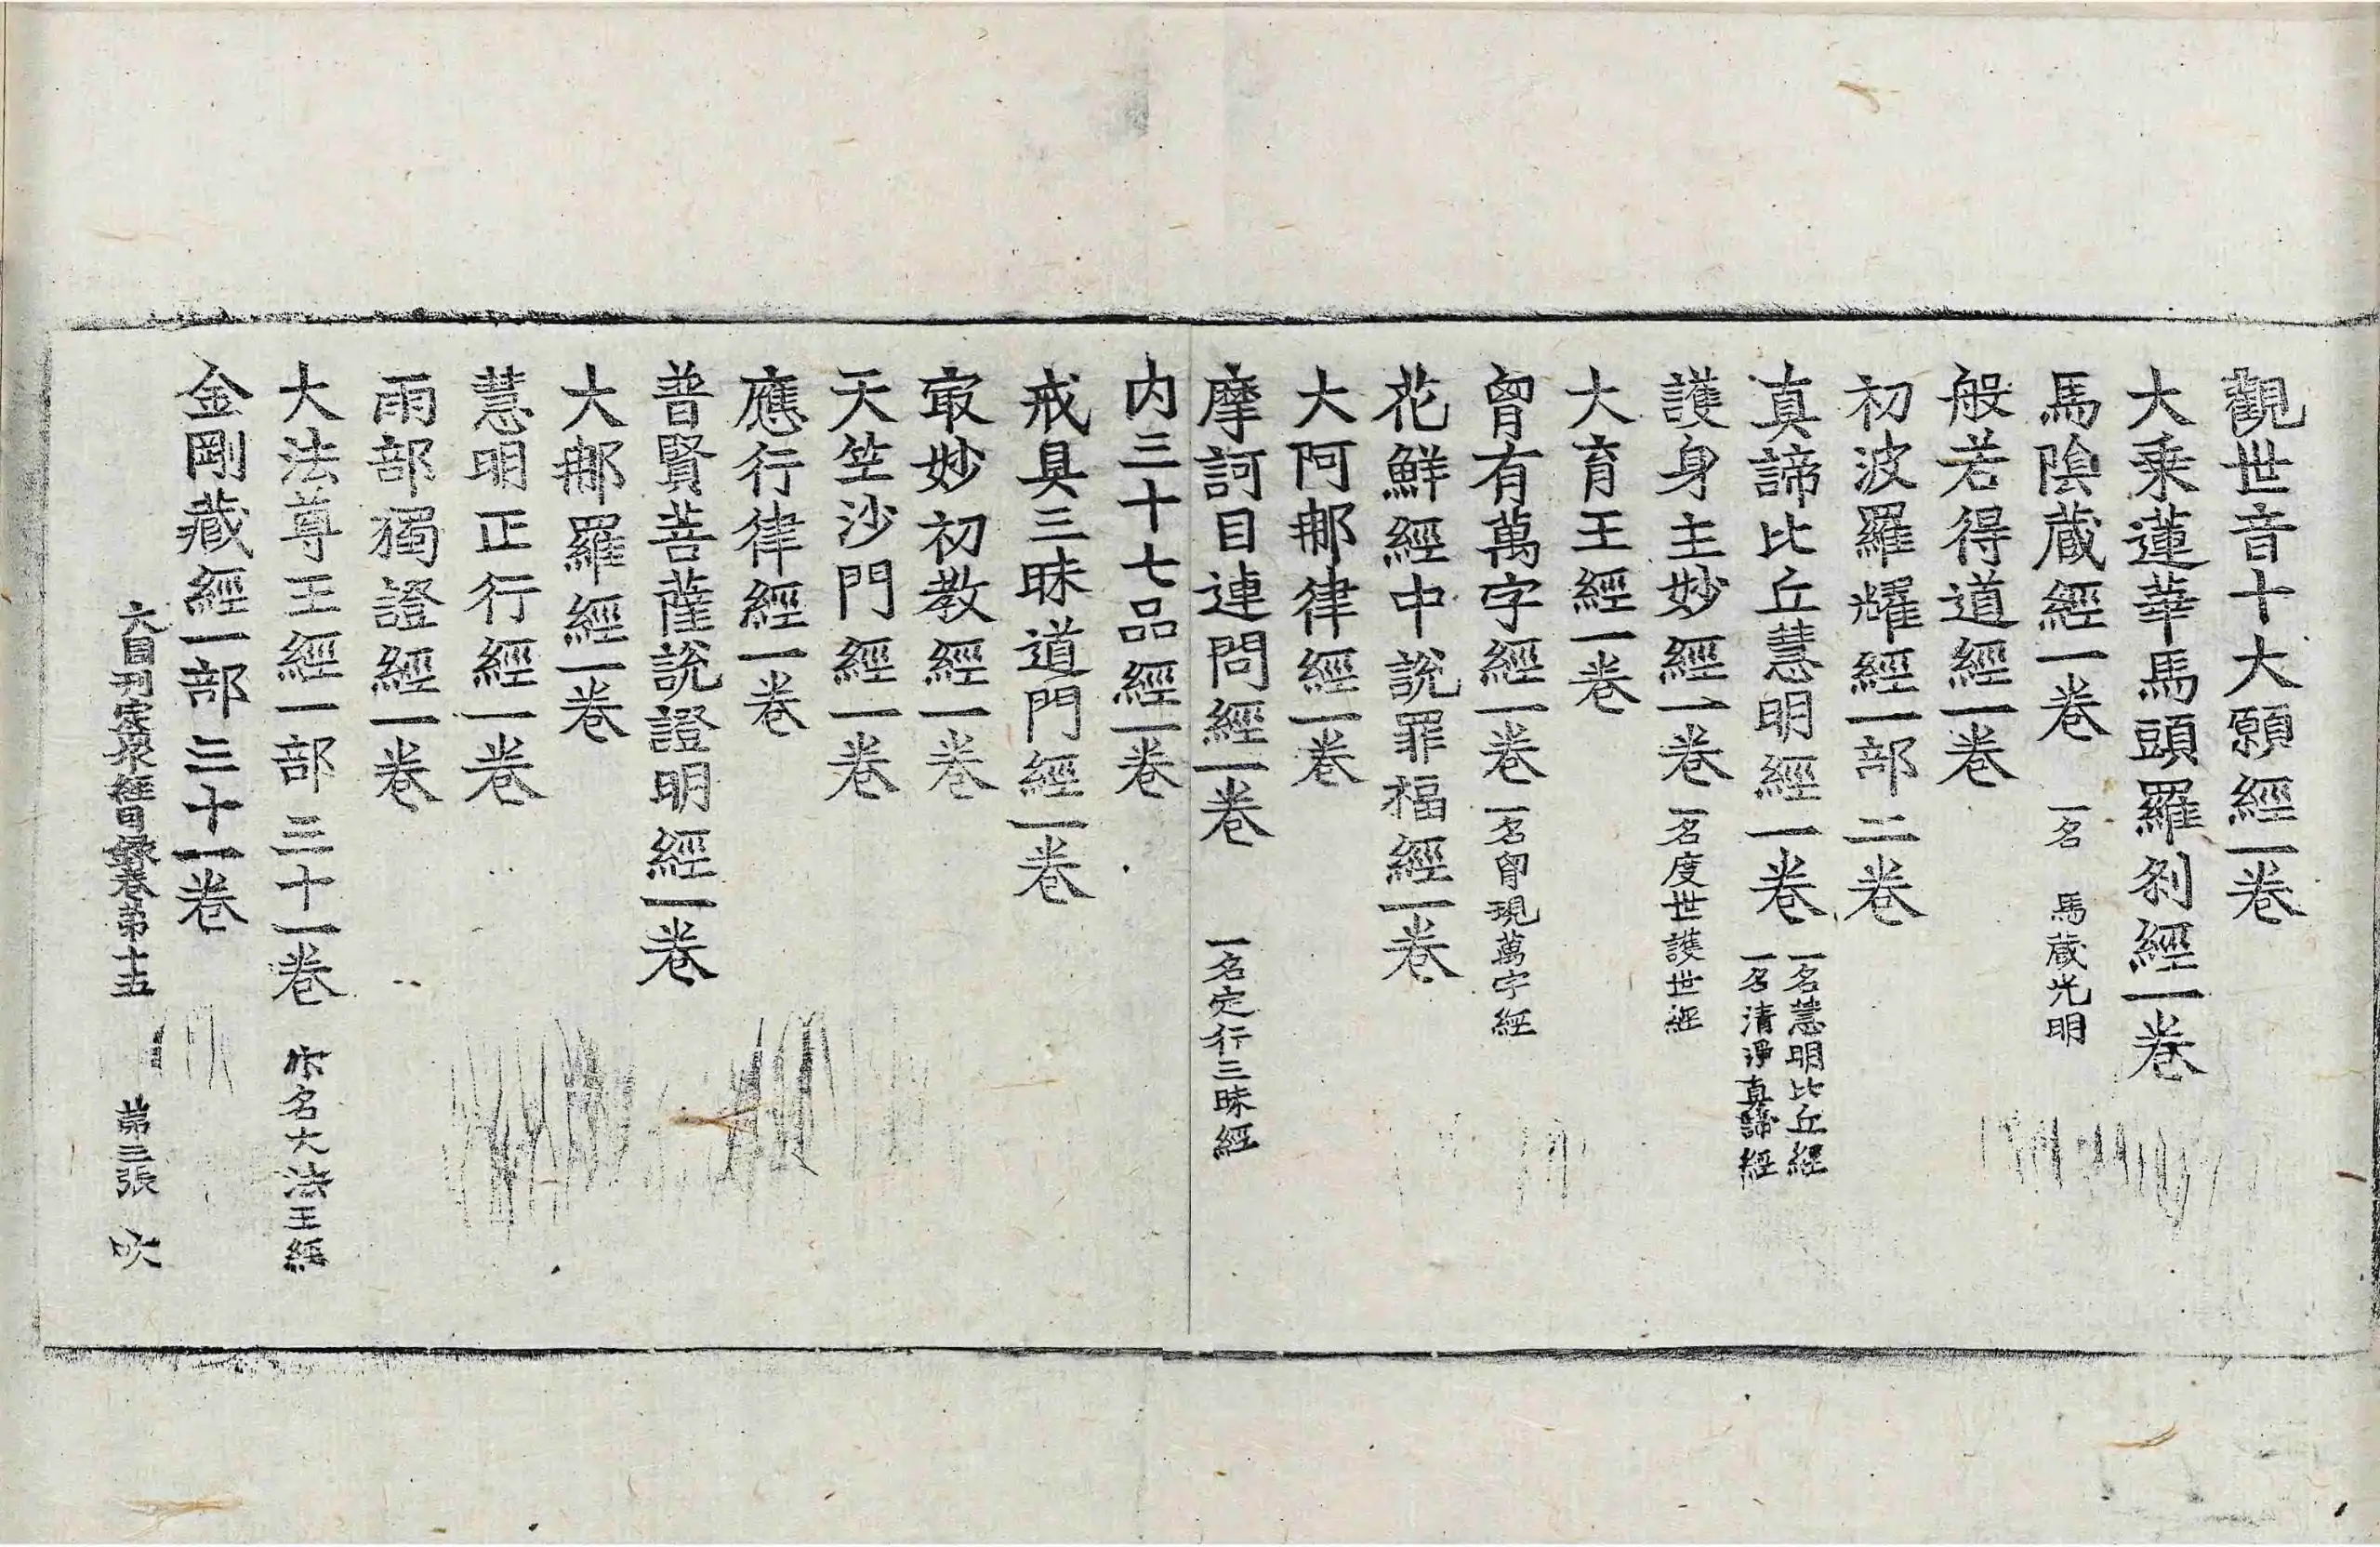 觀世音十大願經一卷
大乘蓮華馬頭羅刹經一卷
馬陰藏經一卷 一名 馬藏光明
般若得道經一卷
初波羅耀經一部二卷
真諦比丘慧明經一卷 一名慧明比丘經 一名清淨真諦經
護身主妙經一卷 一名度世護世經
大育王經一卷
匈有萬字經一卷 一名匈現萬字經
花鮮經中說罪福經一卷
大阿那律經一卷
摩訶目連問經一卷 一名定行三昧經
内三十七品經一卷
戒具三昧道門經一卷
冣妙初教經一卷
天竺沙門經一卷
應行律經一卷
普賢菩薩説證明經一卷
大那羅經一卷
慧明正行經一卷
雨部獨證經一卷
大法尊王經一部三十一卷 亦名大法王經
金剛藏經一部三十一卷
大周刊定衆經目録卷第十五 第三張 吹